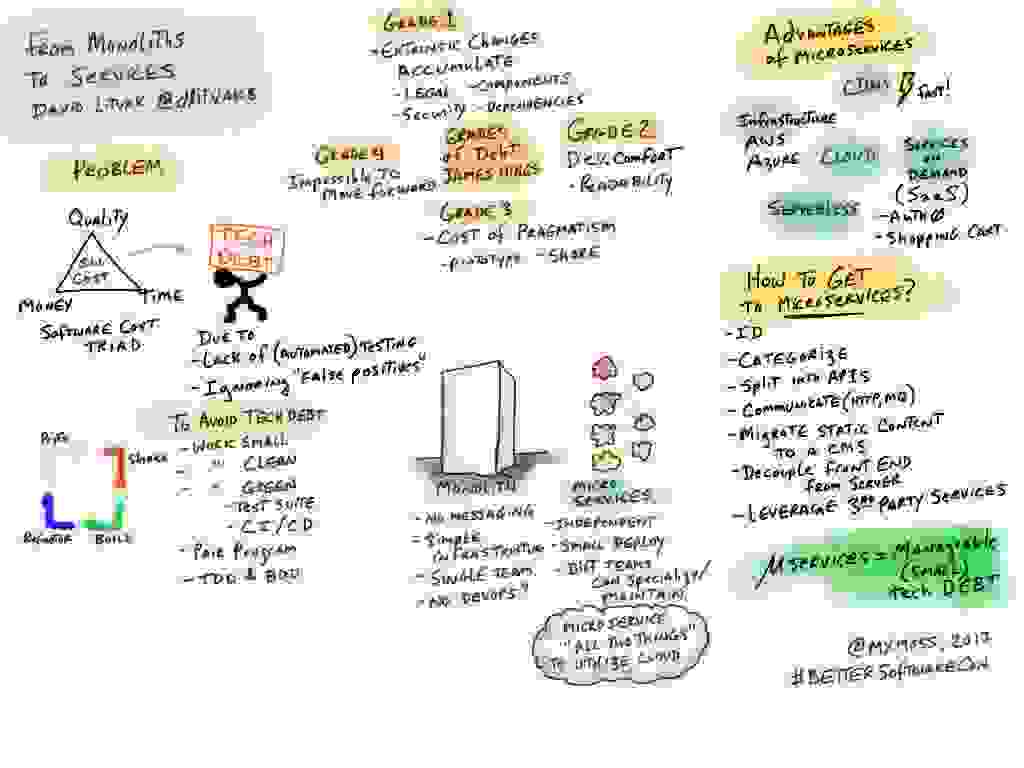 From Monoliths
To Services
David Litvak
Problem
Quality
SW
Cost
Money
Time
Software Cost
Triad
Tech
Debt
Due to
- Lack of (Automated) Testing
- Ignoring "False positives"
To Avoid Tech Debt
- Work Small
- " " Clean
- " " Green
- Test Suite
- CI/CD
- Pair Program
- TDD & BDD
Refactor
Build
Grade 1
- Extrinsic Changes
Accumulate
- Legal - Components
- Security - Dependencies
Grades
of Debt
James
Grade 4
Impossible To
Move Forward
Grade 2
Dev. Comfort
- Readability
Grade 3
- Cost of Pragmatism
- Prototype - Share
Monolith
- No Messaging
- Simple
Infrastructure
- Single Team
- No DevOps"
Micro
Services
- Independent
- Small Deploy
- Diff Teams
Can Specialize/
Maintain
Micro Service
"All Two Things"
To Utilize Cloud
Advantages
of Microservices
Fast!
Infrastructure
AWS
Azure
Cloud
Services
on
Demand
(SaaS)
- Auth0
- Shopping Cart.
Serverless
How To Get
To Microservices?
- ID
- Categorize
- Split into APIs
- Communicate (HTTP, MQ)
- Migrate Static Content
To a CMS
- Decouple Front End
From Server
- Leverage 3rd Party Services
μServices = Manageable
(Small)
Tech Debt
@MXMOSS, 2017
#BetterSoftwareCon